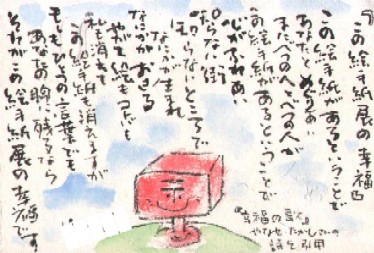 この絵手紙展の幸福は
この絵手紙があるということで
あなたとめぐりあい
またべつの人とべつの人が
この絵手紙があるということで
心がふれあい
知らない街の
知らないところで
なにかが生まれ
なにかがおきる
やがて絵もコトバも
私も消えて
この絵手紙も消えるが
もしもひとつの言葉でも
あなたの胸に残るなら
それがこの絵手紙展の幸福です
『幸福の歌』
やなせ・たかしさんの
詩を引用
〒